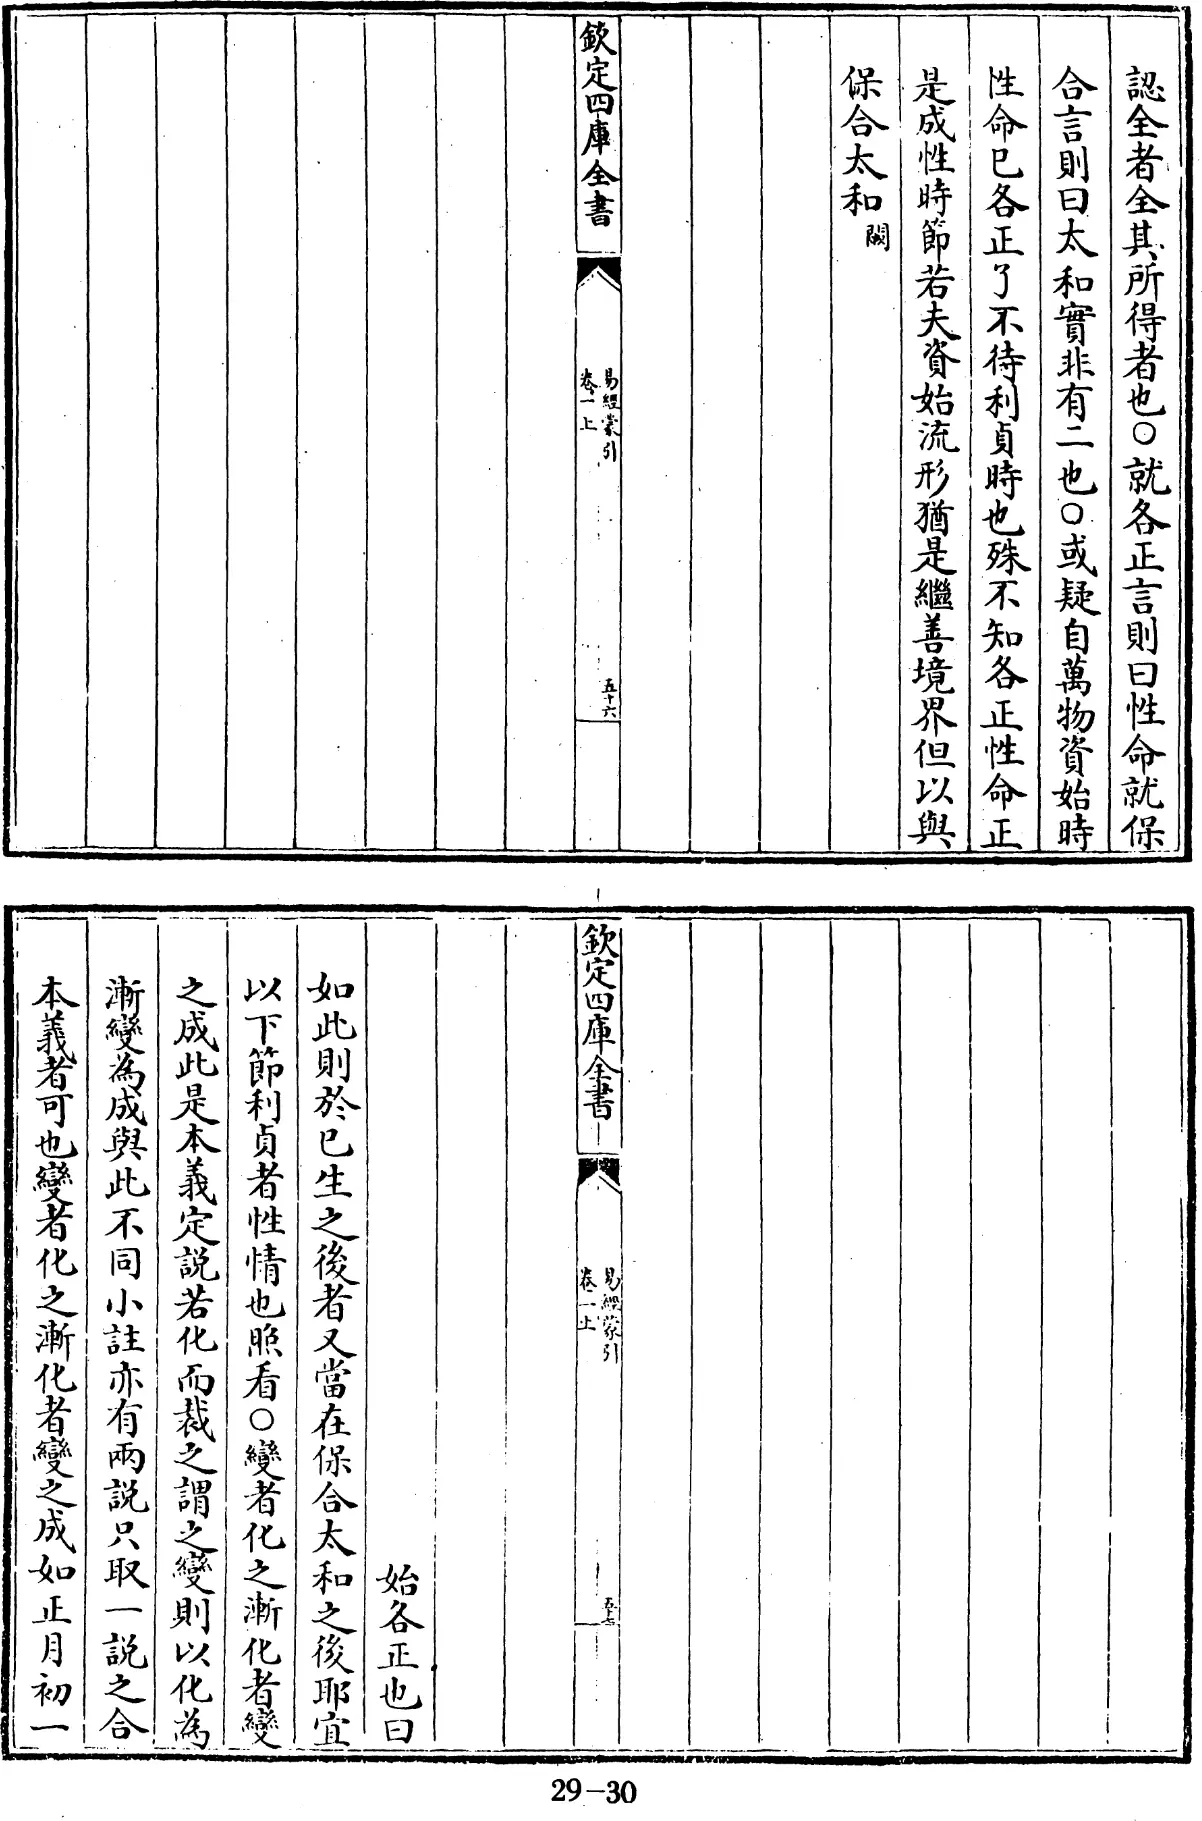 認全者全其所得者也○就各正言則曰性命就保
合言則曰太和實非有二也○或疑自萬物資始時
性命已各正了不待利貞時也殊不知各正性命正
是成性時節若夫資始流形猶是繼善境界但以與
保合太和闕
欽定四庫全書
易經蒙引
卷一上
五十六
欽定四庫全書
易經蒙引
卷一上
始各正也曰
如此則於已生之後者又當在保合太和之後耶宜
以下節利貞者性情也照看○變者化之漸化者變
之成此是本義定説若化而裁之謂之變則以化為
漸變為成與此不同小註亦有兩説只取一説之合
本義者可也變者化之漸化者變之成如正月初一
29-30